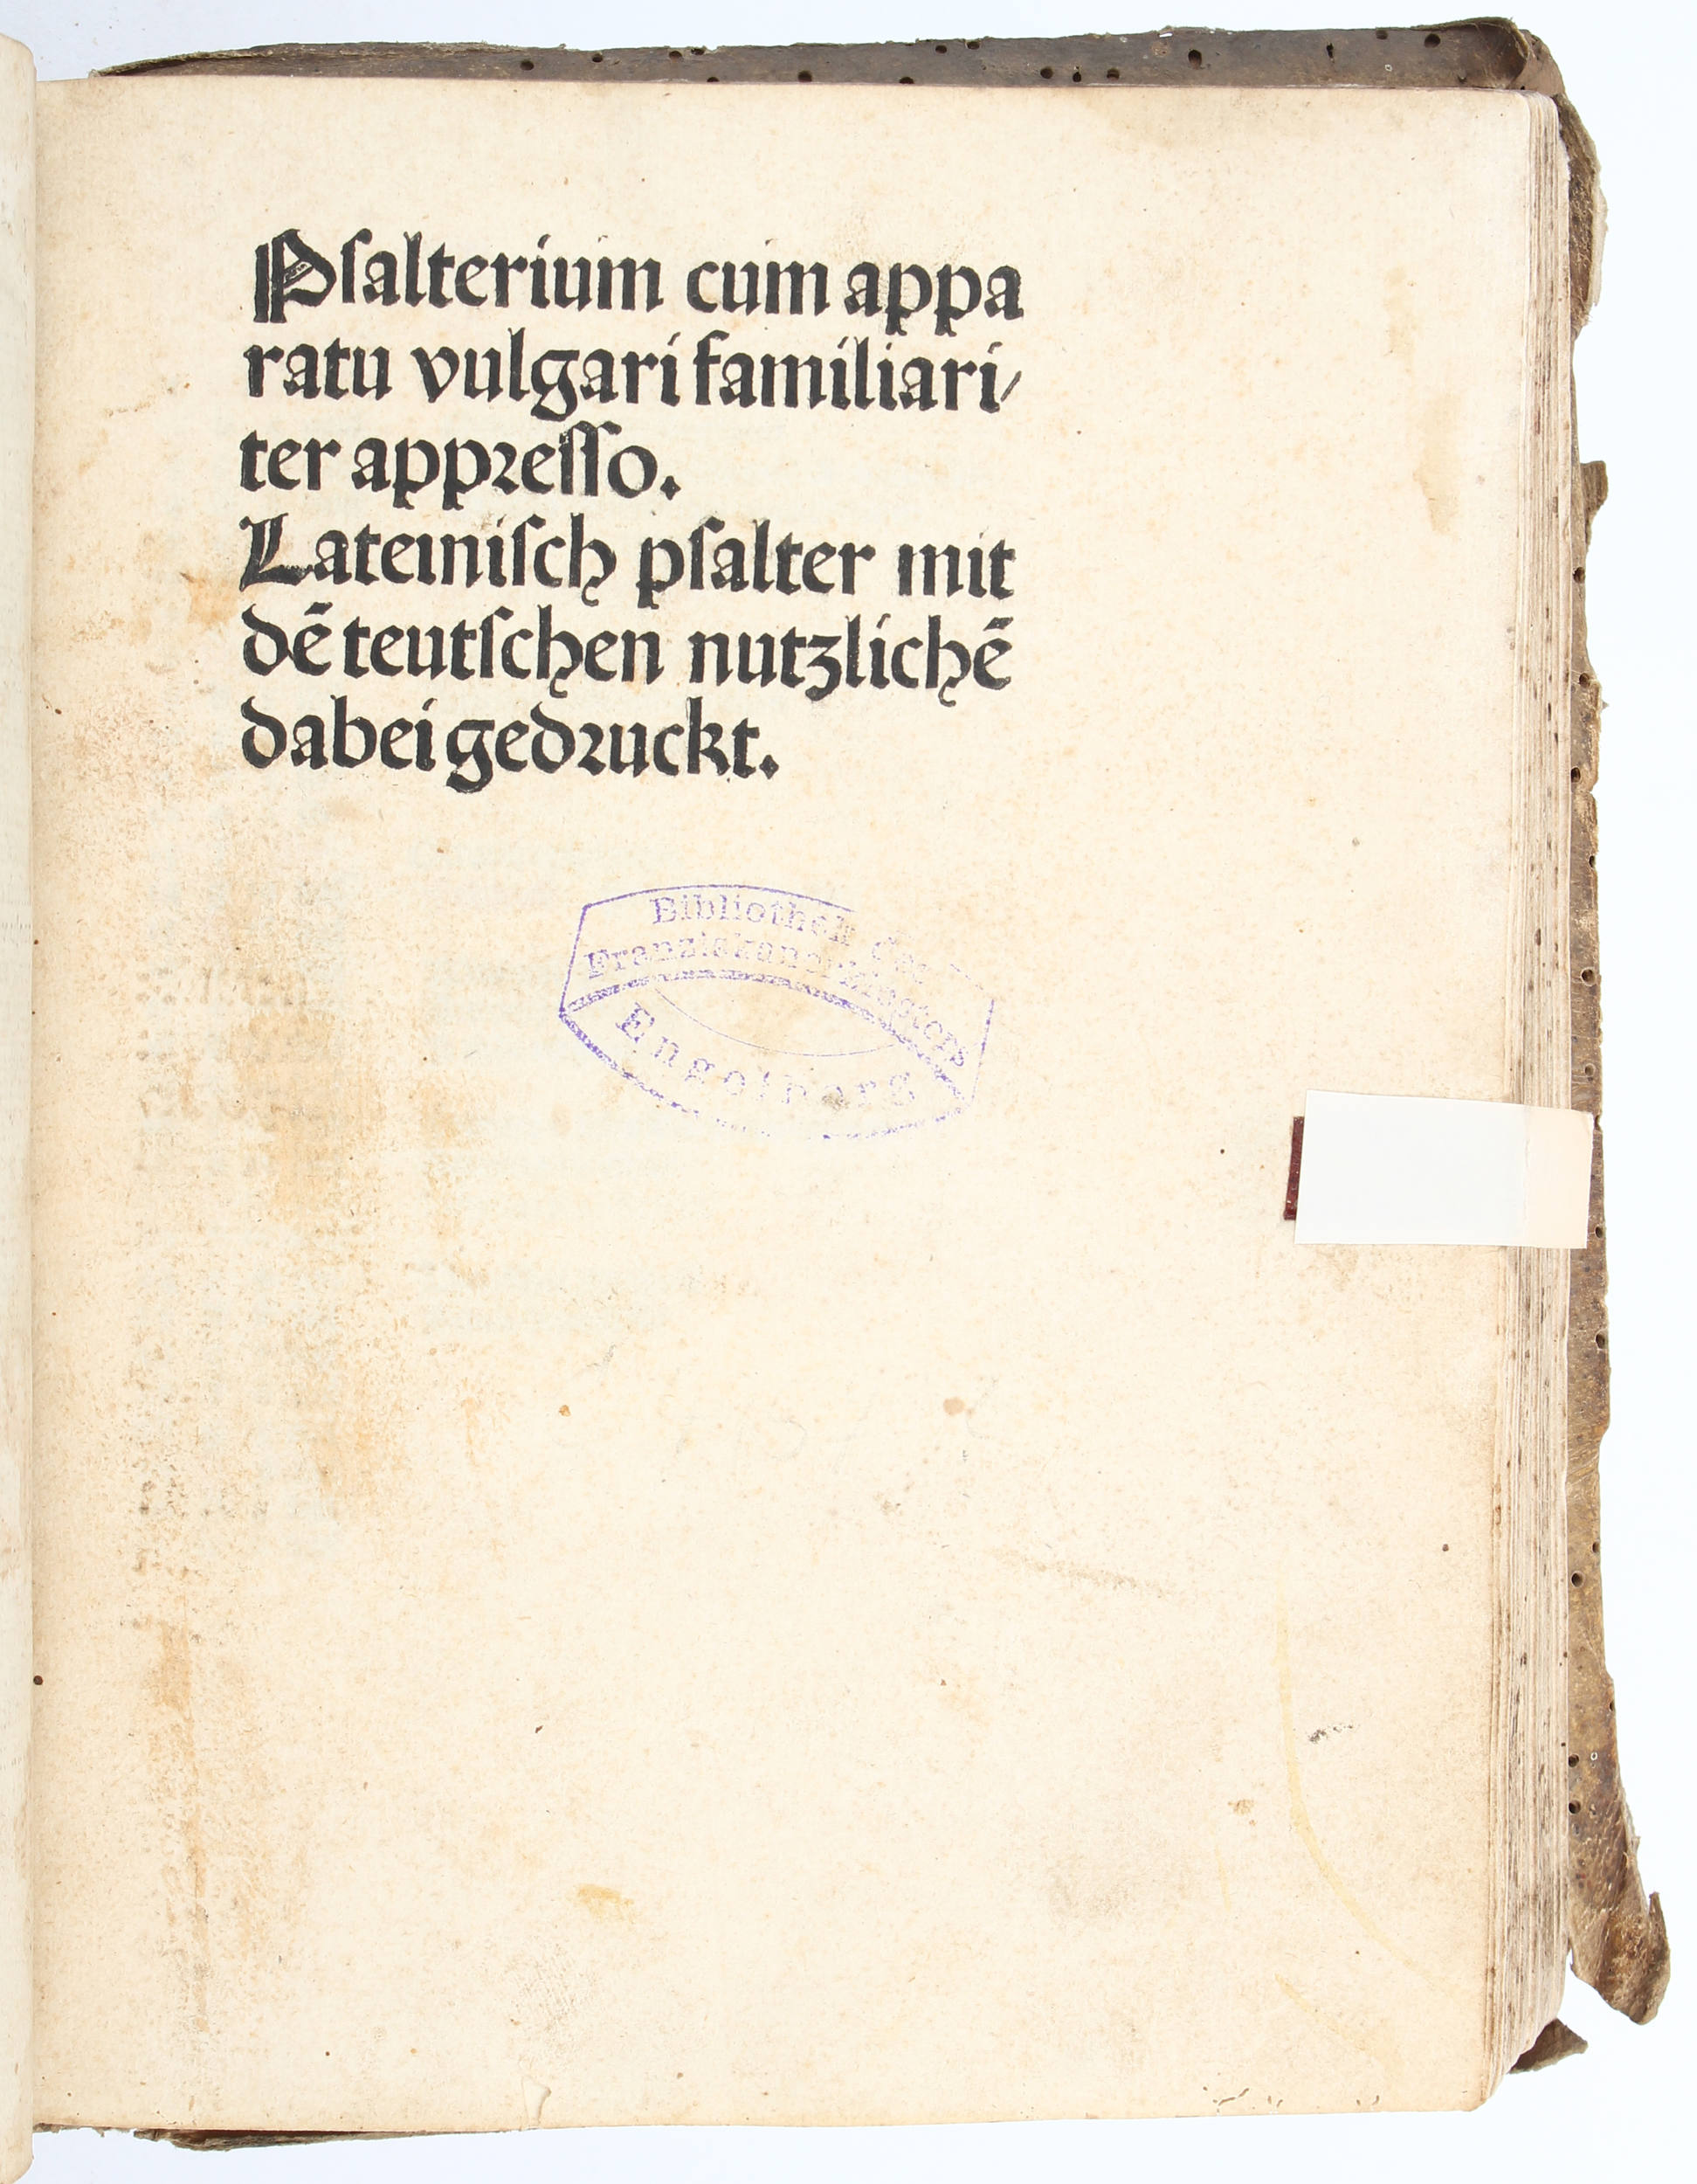 Pſalterium cum appa
ratu vulgari familiari⸗
ter appꝛeſſo.
Lateiniſch pſalter mit
dē teutſchen nutzlichē
dabei gedꝛuckt.
Bibliothek des
Franziskanerklosters
Engelberg